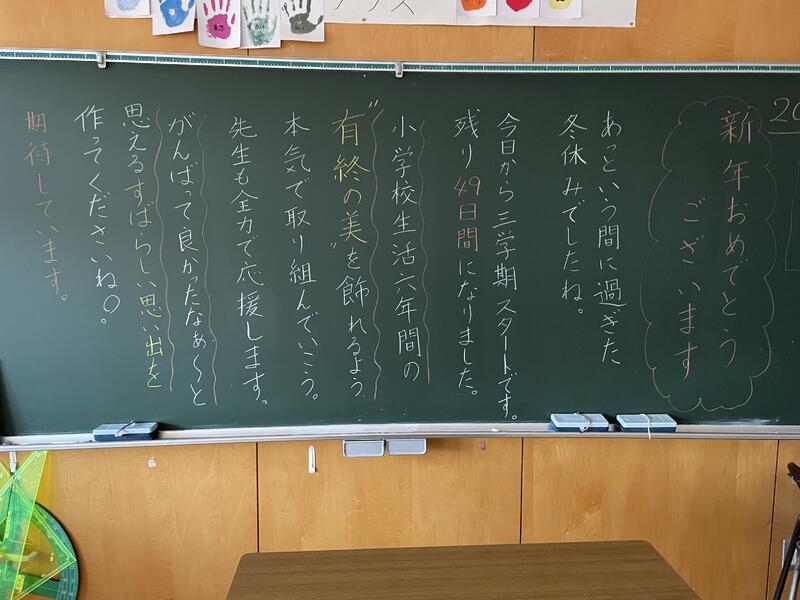 新年おめでとう
ございます
あっという間に過ぎた
冬休みでしたね。
今日から三学期スタートです。
残り49日間になりました。
小学校生活六年間の
"有終の美"を飾れるよう
本気で取り組んでいこう。
先生も全力で応援します。
がんばって良かったなぁ〜と
思えるすばらしい思い出を
作ってくださいね○。
期待しています。